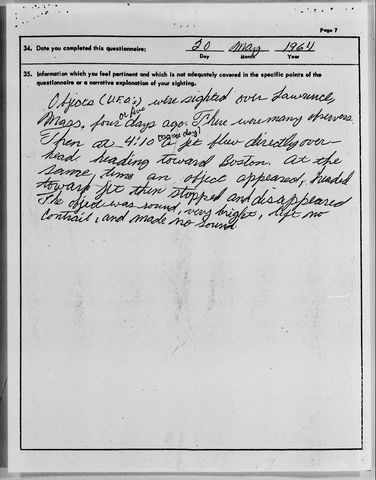 Page 7
34. Date you completed this questionnaire: 20 May 1964
Day Month Year
35. Information which you feel pertinent and which is not adequately covered in the specific points of the
questionnaire or a narrative explanation of your sighting.
Objects (U.F.O's) were sighted over Lawrence,
or five
Mass. four days ago. There were many observers.
(same day)
Then at 4:10 a jet flew directly over-
head heading toward Boston. At the
same time an object appeared, headed
toward jet then stopped and disappeared
The object was round, very bright, left no
contrail, and made no sound.